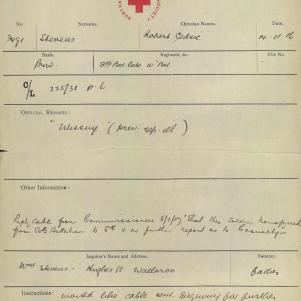 SOCIETY
No. Surname. Christian Names. Date.
3491 Stevens Robert Cedric 14-11-16
Rank. Regiment, &c. File No.
Priv
C/L 225/31 P.6
OFFICIAL REPORTS:
"Missing" (prev rep. ill)
Other Information:
Reply Cable from Commissioners 8/1/17 "that this soldier transferred
from Battalion to 5th & no further report as to Casualty"
Inquirer's Name and Address. Relation.
Wm Stevens - Hughes St
Instructions: would like cable sent